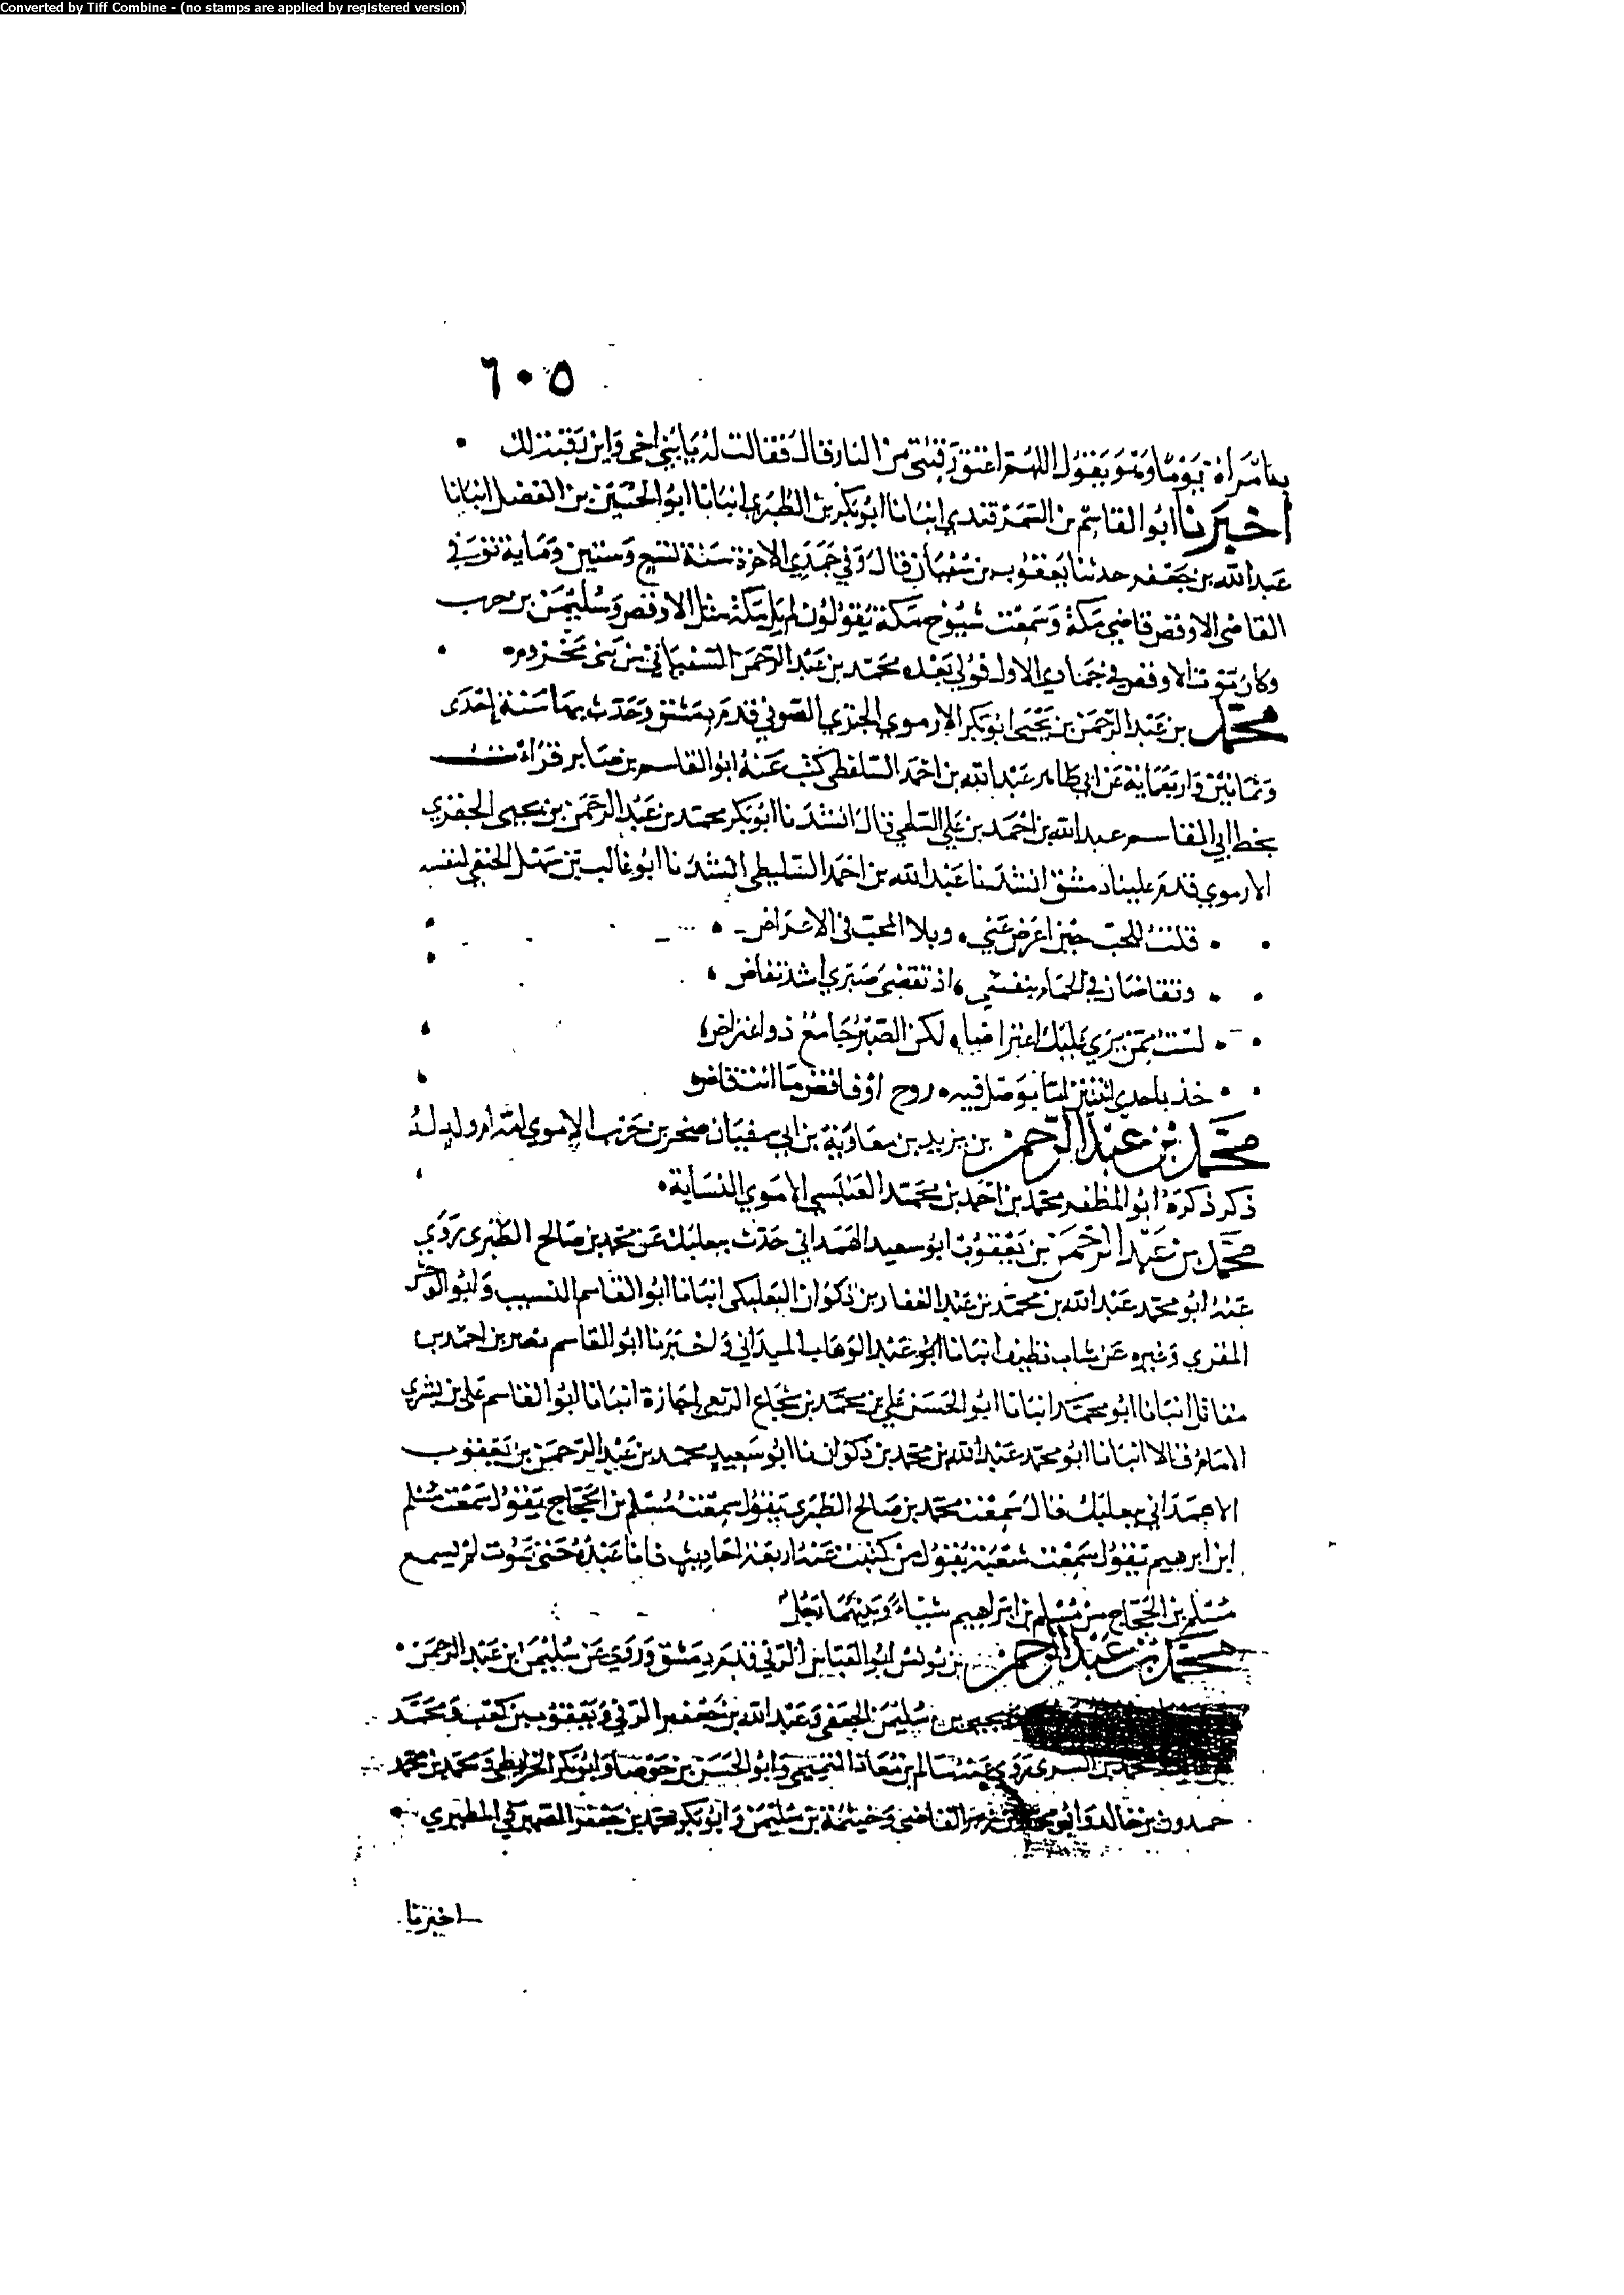 Converted by Tiff Combine - (no stamps are applied by registered version)
٦٠٥
به امرأة يوما وهو يقول اللهم اعتق رقبتي من النار قال فقالت له يا بني اخي واين رقبتك
اخبرنا ابو القاسم بن السمرقندي انبانا ابو بكر بن الطبري انبانا ابو الحسين بن الفضل انبانا
عبد الله بن جعفر حدثنا يعقوب بن سفيان قال وفي جمدي الاخرة سنة تسع وستين وماية توفي
القاضي الاوقص قاضي مكة وسمعت شيوخ مكة يقولون لم يل مكة مثل الاوقص وسليمن بن حرب
وكان يموت الاوقص في جمادي الاول فولي بعده محمد بن عبد الرحمن السفياني من بني مخزوم
محمد بن عبد الرحمن بن يحيى ابو بكر الارموي الجنزي الصوفي قدم دمشق وحدث بها سنة إحدى
وثمانين واربعماية عن ابي طاهر عبد الله بن احمد السلفطي كتب عنه ابو القاسم بن صابر قرات
بخط ابي القاسم عبد الله بن احمد بن علي السلمي قال انشدنا ابو بكر محمد بن عبد الرحمن بن يحيى الجفزي
الارموي قدم علينا دمشق انشدنا عبد الله بن احمد السليطي انشدنا ابو غالب بن سهل الحنفي لنفسه
قلت للحب حين اعرض عني وبلا المحب في الاعراض
وتقاضان في الحمام بنفسي اذ تقضى صبري اشد تقاض
لست ممن يري عليك اعتراضا لكن الصبر جامع ذو اعتراض
خذ باحدي اثنتين لما بوصل فيه روح اوفاقض ما انت قاض
محمد بن عبد الرحمن بن يزيد بن معاوية بن ابي سفيان صخر بن حرب الاموي امه ام ولد له
ذكر ذكره ابو المظفر محمد بن احمد بن محمد العنبسي الاموي النساية
محمد بن عبد الرحمن بن يعقوب ابو سعيد الهمداني حدث ببعلبك عن محمد بن صالح الطبري روي
عنه ابو محمد عبد الله بن محمد بن عبد الغفار بن ذكوان البعلبكي انبانا ابو القاسم النسيب وابو الوحش
المقري وغيره عن شاب نظيف انبانا عبد الوهاب الميداني واخبرنا ابو القاسم نصر بن احمد بن
مقاتل انبانا ابو محمد انبانا ابو الحسن علي بن محمد بن شجاع الربعي اجازة انبانا ابو القاسم علي بن بشري
الامام قالا انبانا ابو محمد عبد الله بن محمد بن ذكوان نا ابو سعيد محمد بن عبد الرحمن بن يعقوب
الاهمداني ببعلبك قال سمعت محمد بن صالح الطبري يقول سمعت مسلم بن الحجاج يقول سمعت مسلم
ابن ابرهيم يقول سمعت شعبة يقول من كتبت عنه اربعة احاديث فانا عبده حتى يموت لم يسمع
مسلم بن الحجاج من مسلم بن ابراهيم شياء وبينهما رجل
محمد بن عبد الرحمن بن يونس ابو العباس الرقي قدم دمشق وروي عن سليمن ابن عبد الرحمن
يحيى بن سليمن الجعفي وعبد الله بن جعفر الرقي ويعقوب بن كعب ومحمد
محمد بن السري روي عنه سالم بن معاذ التميمي وابو الحسن بن جوصا وابو بكر الخرايطي ومحمد بن محمد
حمدون بن خالد وابو القاضي وخيثمة بن سليمن وابو بكر محمد بن جعفر الصيرفي المطيري
اخبرنا